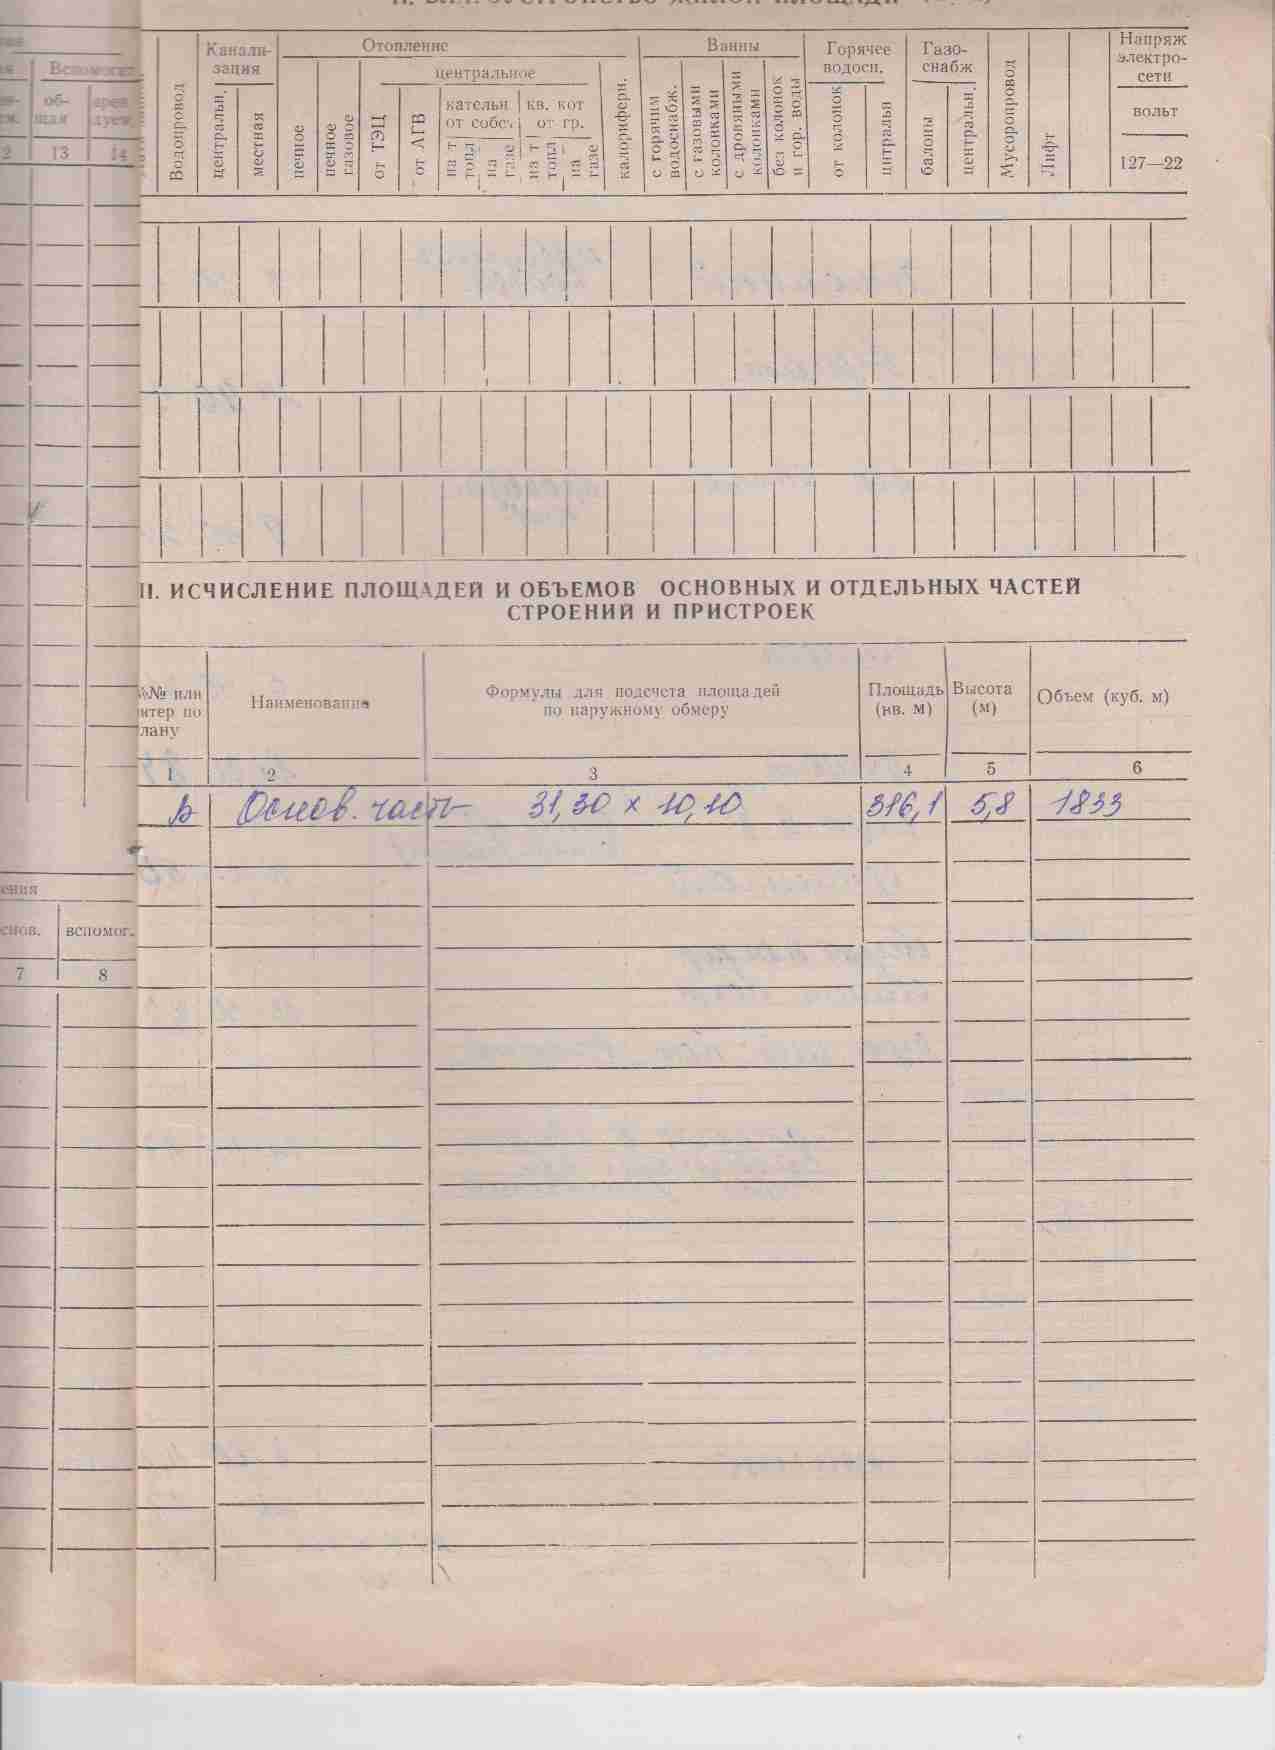 Вспомогат.
об-
щая
арен
дуем.
13
14
Водопровод
Канали-
зация
центральн.
местная
Отопление
печное
печное
газовое
центральное
от ТЭЦ
от АГВ
кательн
от собст
на т
топл
на
газе
кв. кот
от гр.
на т
топл
на
газе
калориферн.
Ванны
с горячим
водоснабж.
с газовыми
колонками
с дровяными
колонками
без колонок
и гор. воды
Горячее
водосн.
от колонок
центральн
Газо-
снабж
балоны
центральн.
Мусоропровод
Лифт
Напряж
электро-
сети
вольт
127—22
II. ИСЧИСЛЕНИЕ ПЛОЩАДЕЙ И ОБЪЕМОВ ОСНОВНЫХ И ОТДЕЛЬНЫХ ЧАСТЕЙ
СТРОЕНИЙ И ПРИСТРОЕК
№№ или
итер по
лану
Наименование
Формулы для подсчета площадей
по наружному обмеру
Площадь
(кв. м)
Высота
(м)
Объем (куб. м)
1 2 3 4 5 6
Б Основ. часть 31,30 x 10,10 316,1 5,8 1833
ения
снов.
вспомог.
7 8